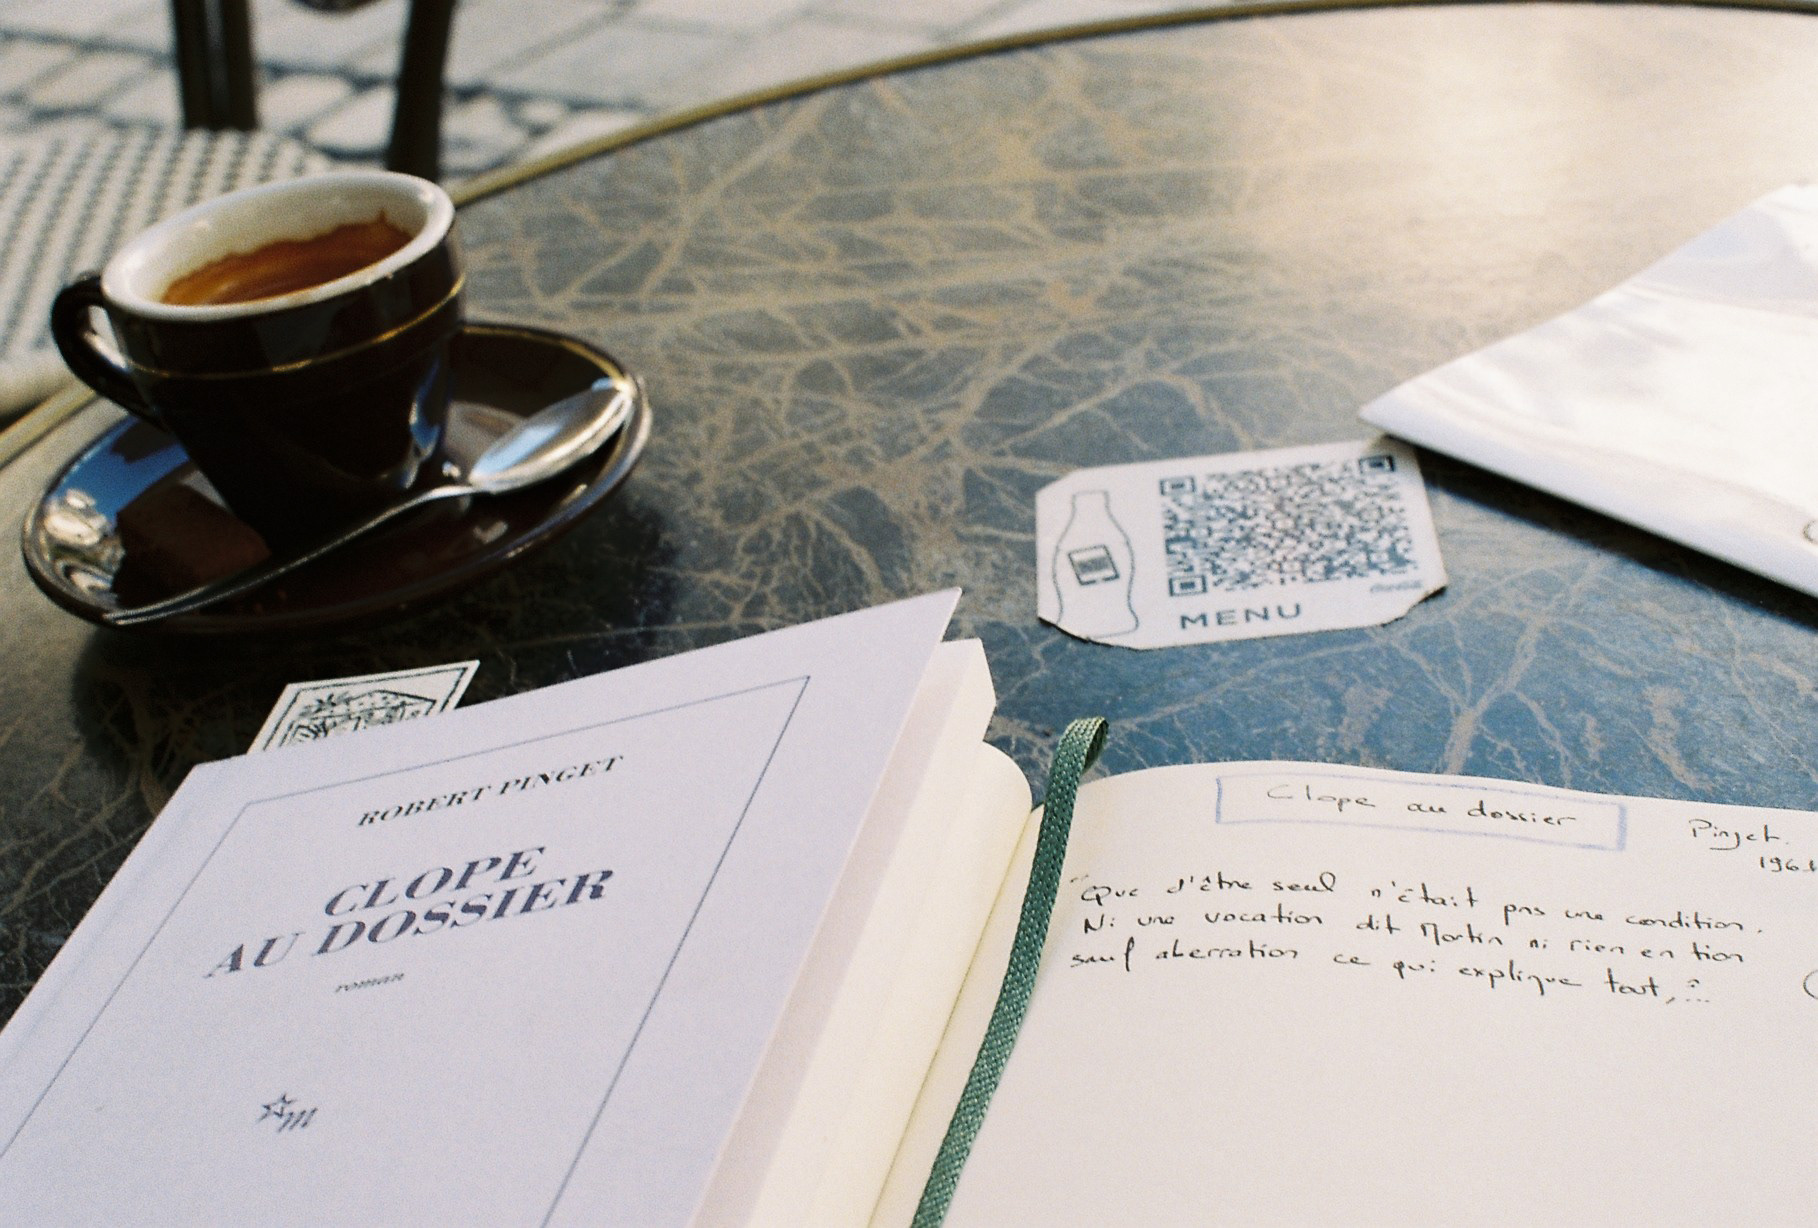 MENU
ROBERT PINGET
CLOPE
AU DOSSIER
roman
m
Clope au dossier
Pinget.
1961
"Que d'être seul n'était pas une condition.
Ni une vocation dit Mortin ni rien en tion
sauf aberration ce qui explique tout,